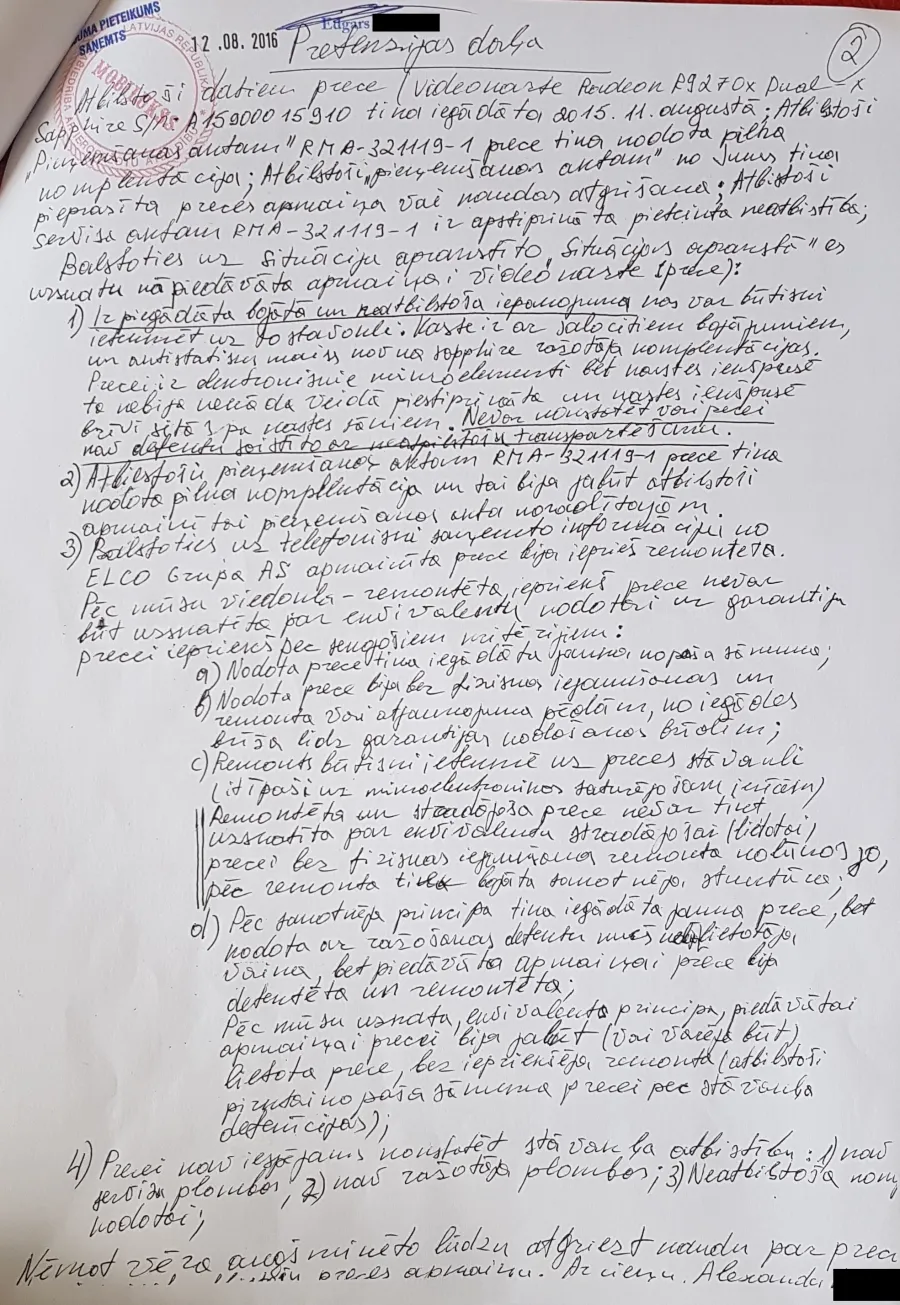 UMA PIETEIKUMS
SAŅEMTS
LATVIJAS REPUBLIKA
12.08.2016
Edgars
Pretenzijas daļa
2
Atbilstoši datiem prece (Videokarte Radeon R9270x Dual-X
Sapphire S/N: A159000 15910 tika iegādāta 2015. 11. augustā; Atbilstoši
"Pieņemšanas aktam" RMA-321119-1 prece tika nodota pilnā
komplektācijā; Atbilstoši "pieņemšanas aktam" no Jums tika
pieprasīta preces apmaiņa vai naudas atgriešana; Atbilstoši
servisa aktam RMA-321119-1 ir apstiprināta pieteikta neatbilstība;
Balstoties uz situāciju aprakstīto "Situācijas aprakstā" es
uzskatu ka piedāvāta apmaiņai videokarte (prece):
1) Ir piegādāta bojātā un neatbilstoša iepakojumā kas var būtiski
ietekmēt uz to stāvokli. Kaste ir ar salocītiem bojājumiem,
un antistatisks maiss nav no sapphire ražotāja komplektācijas.
Precei ir elektroniskie mikroelementi bet kastes iekšpusē
ta nebija nekāda veidā piestiprināta un kastes iekšpusē
brīvi sitās pa kastes sāniem. Nevar konstatēt vai precei
nav defektu saistīto ar neatbilstošu transportēšanu.
2) Atbilstoši pieņemšanas aktam RMA-321119-1 prece tika
nodota pilna komplektācija un tai bija jabūt atbilstoši
apmainītai pieņemšanas akta norādītajām.
3) Balstoties uz telefoniski saņemto informāciju no
ELCO Grupa AS apmainīta prece bija iepriēš remontēta.
Pēc mūsu viedokļa - remontēta iepriekš prece nevar
būt uzskatīta par ekvivalentu nodotai uz garantiju
precei iepriekš pēc sekojošiem kritērijiem:
a) Nodota prece tika iegādāta jauna, no paša sākuma;
b) Nodota prece bija bez fiziskas iejaukšanas un
remonta vai atjaunojuma pēdām, no iegādes
brīža līdz garantijas nodošanas brīdim;
c) Remonts būtiski ietekmē uz preces stāvokli
(itīpaši uz mikroelektronikas saturējošam ierīcēm)
Remontēta un strādājoša prece nevar tikt
uzskatīta par ekvivalentu strādājošai (lietotai)
precei bez fiziskas iejaukšanas remonta nolūkos jo,
pēc remonta bojāta samotnēja struktūra;
d) Pēc samotnēja principa tika iegādāta jauna prece, bet
nodota ar ražošanas defektu kurš lietotāja
vaina, bet piedāvāta apmaiņai prece bija
defektēta un remontēta;
Pēc mūsu uzskata, ekvivalenta principa, piedāvātai
apmaiņai precei bija jabūt (vai varēja būt)
lietota prece, bez iepriekšēja remonta (atbilstoši
pirktai no paša sākuma precei pēc stāvokļa
definīcijas);
4) Precei nav iespējams konstatēt stāvokļa atbilstību: 1) nav
servisu plombes, 2) nav ražotāja plombes; 3) Neatbilstoša kom
nodotai;
Ņēmot vērā augšminēto lūdzu atgriezt naudu par preci
preces apmaiņu. Ar cieņu. Alexandr